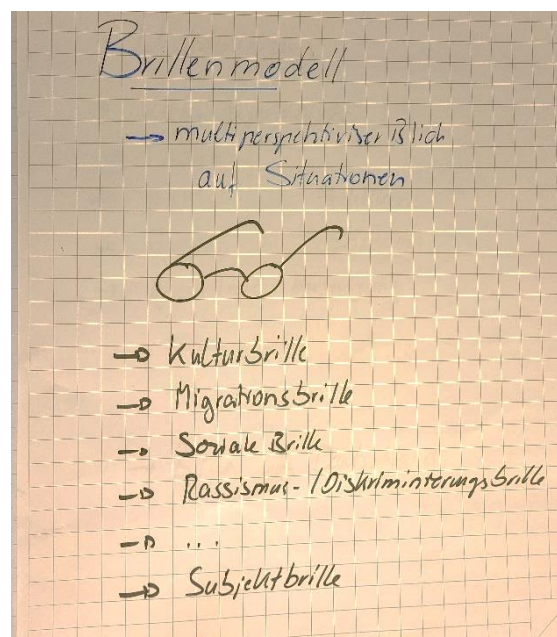 Brillenmodell
→ multiperspektiviser Blick
auf Situationen
→ Kulturbrille
→ Migrationsbrille
→ Soziale Brille
→ Rassismus-/Diskriminierungsbrille
→ ...
→ Subjektbrille